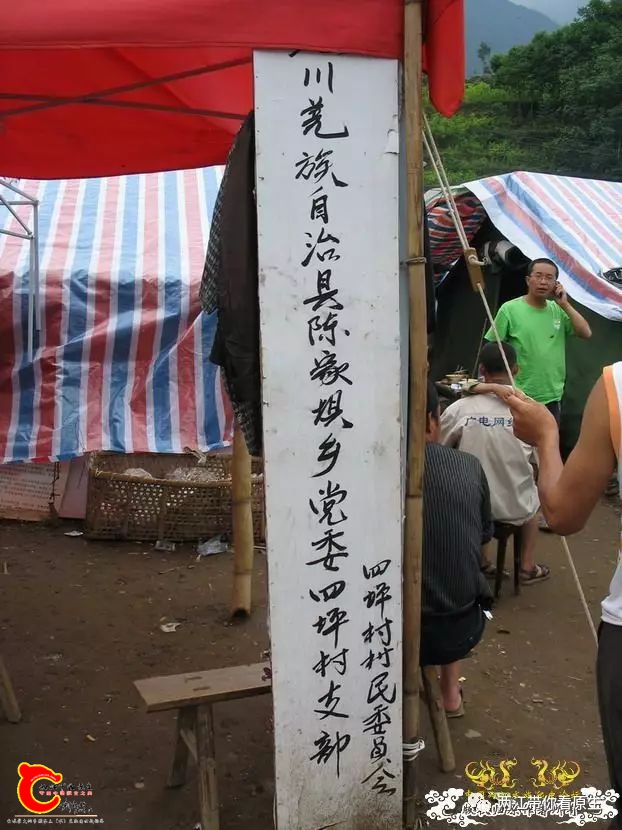 川羌族自治县陈家坝乡党委四坪村支部
四坪村村民委员会
广电网
带你看原生